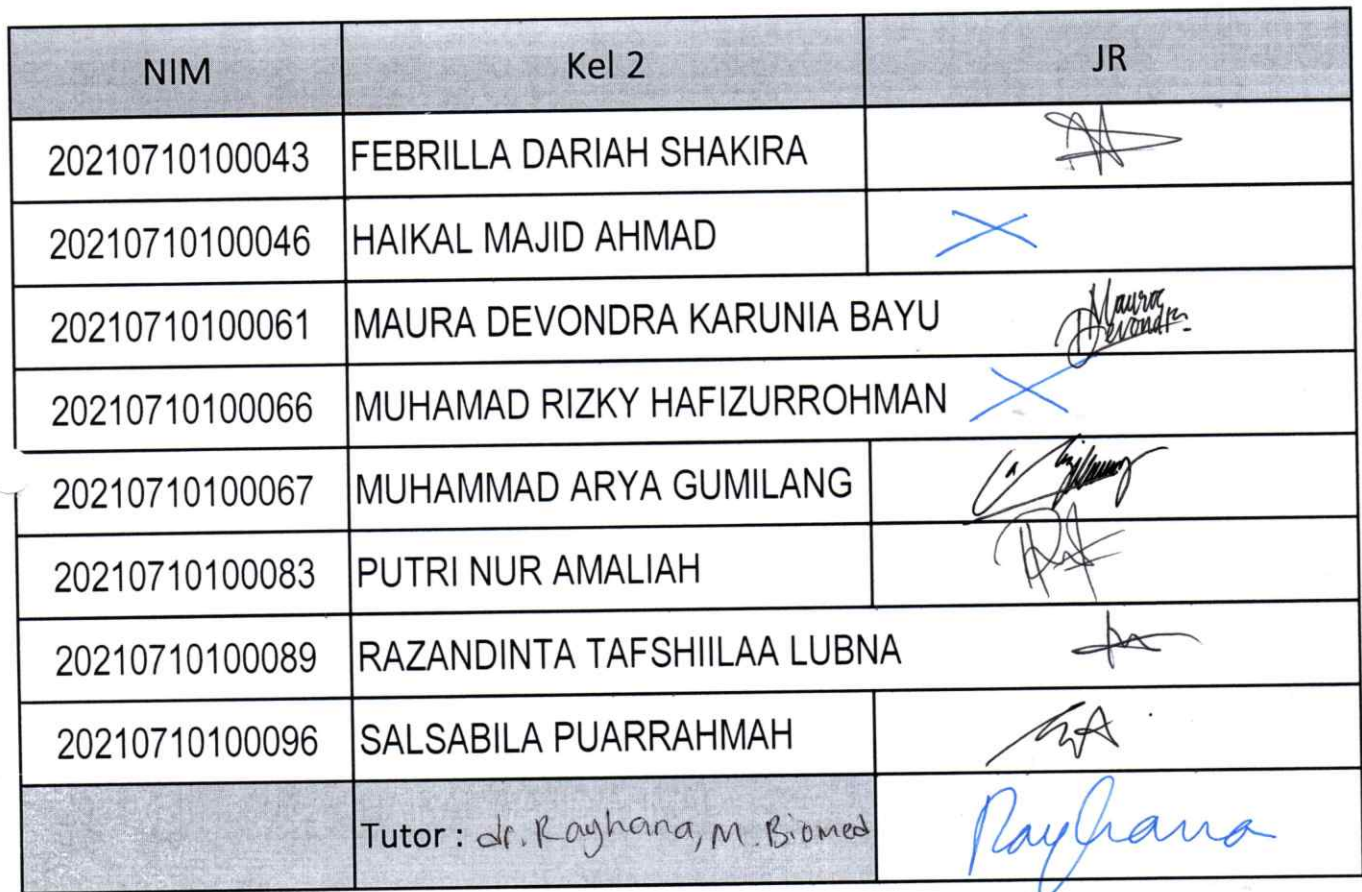 NIM Kel 2 JR
20210710100043 FEBRILLA DARIAH SHAKIRA
20210710100046 HAIKAL MAJID AHMAD
20210710100061 MAURA DEVONDRA KARUNIA BAYU Maura
Devondra
20210710100066 MUHAMAD RIZKY HAFIZURROHMAN
20210710100067 MUHAMMAD ARYA GUMILANG
20210710100083 PUTRI NUR AMALIAH
20210710100089 RAZANDINTA TAFSHIILAA LUBNA
20210710100096 SALSABILA PUARRAHMAH
Tutor : dr. Rayhana, M. Biomed Rayhana